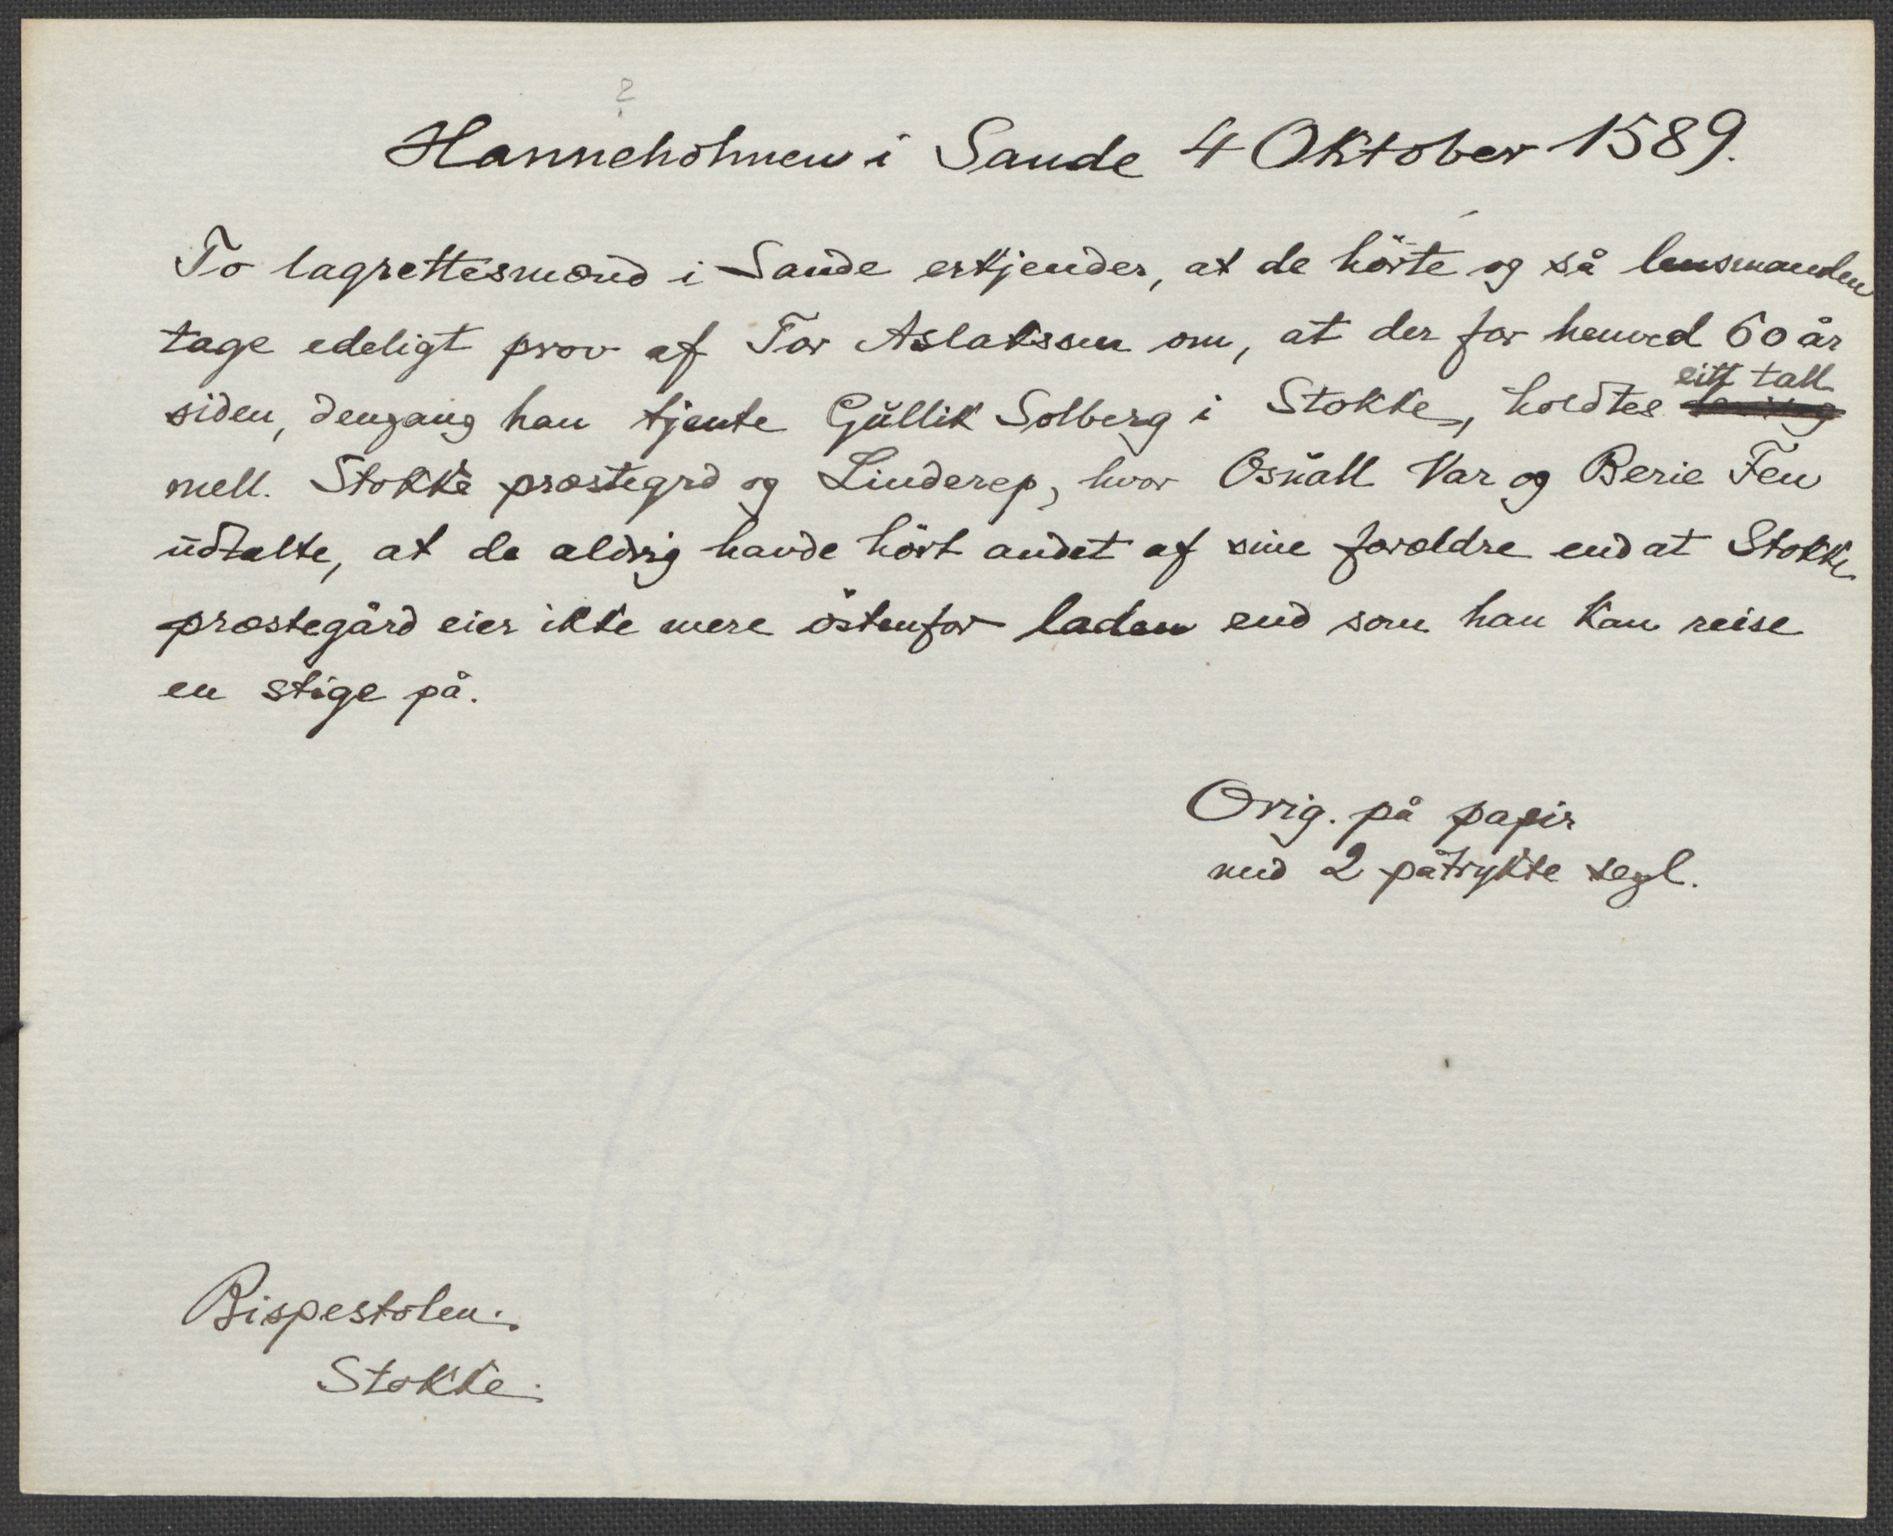 ?
Hanneholmen i Sande 4 Oktober 1589.
To lagrettesmænd i Sande erkjender, at de hörte og så lensmanden
tage edeligt prov af Tor Aslakssen om, at der for henved 60 år
eitt tall
siden, dengang han tjente Gullik Solberg i Stokke, holdtes
mell. Stokke præstegrd og Linderep, hvor Osuall Var og Berie Feu
udtalte, at de aldrig havde hört andet af sine forældre end at Stokke
præstegård eier ikke mere östenfor laden end som han kan reise
en stige på.
Orig. på papir
med 2 påtrykte segl.
Bispestolen.
Stokke.